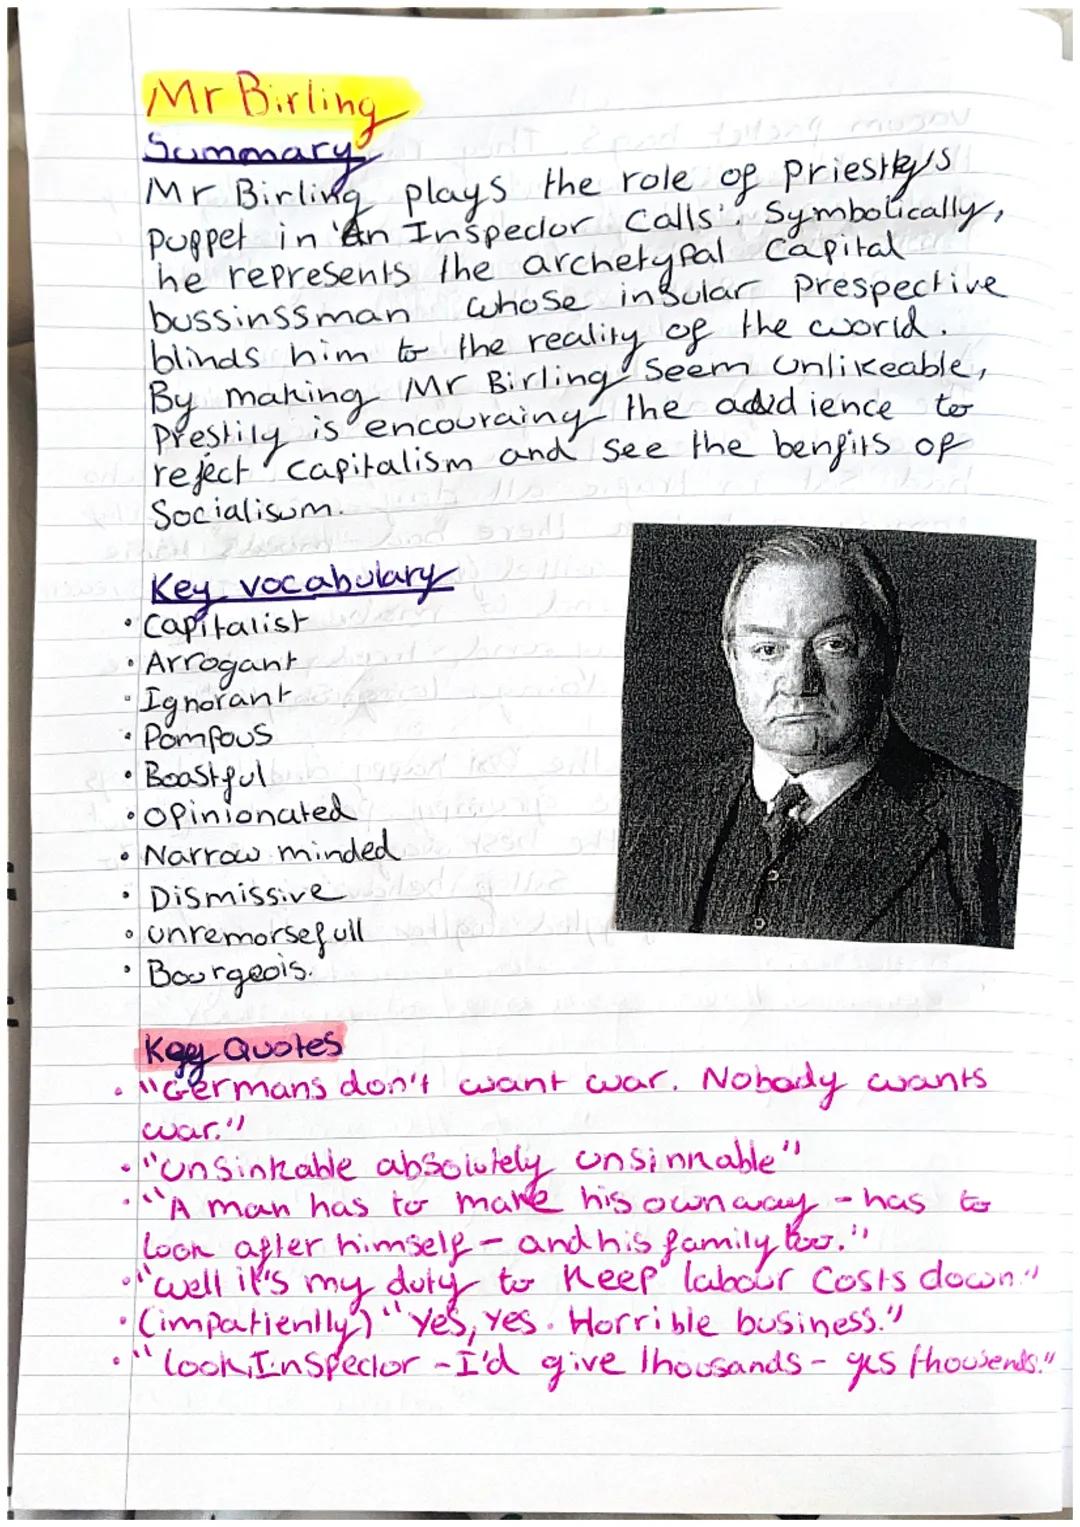 Mr Birling
Summary
Mr Birling plays the role of Priestlys
puppet in 'An Inspector Calls'. Symbolically,
he represents the archetypal Capital
bussinssman whose insular prespective
blinds him to the reality of the world.
By making Mr Birling seem unlikeable,
Prestily is encouraing the audience to
reject capitalism and see the benfits of
Socialisum.
Key vocabulary
• Capitalist
• Arrogant
• Ignorant
• Pompous
• Boastful
• opinionated
• Narrow minded
• Dismissive
• unremorsefull
• Bourgeois.
Key Quotes
• "Germans don't want war. Nobody wants
war."
• "unsinkable absolutely unsinkable"
• "A man has to make his own way - has to
look after himself - and his family too."
• "well it's my duty to keep labour costs down."
• (impatiently) "Yes, yes. Horrible business."
• "look, Inspector - I'd give thousands - yes thousends."